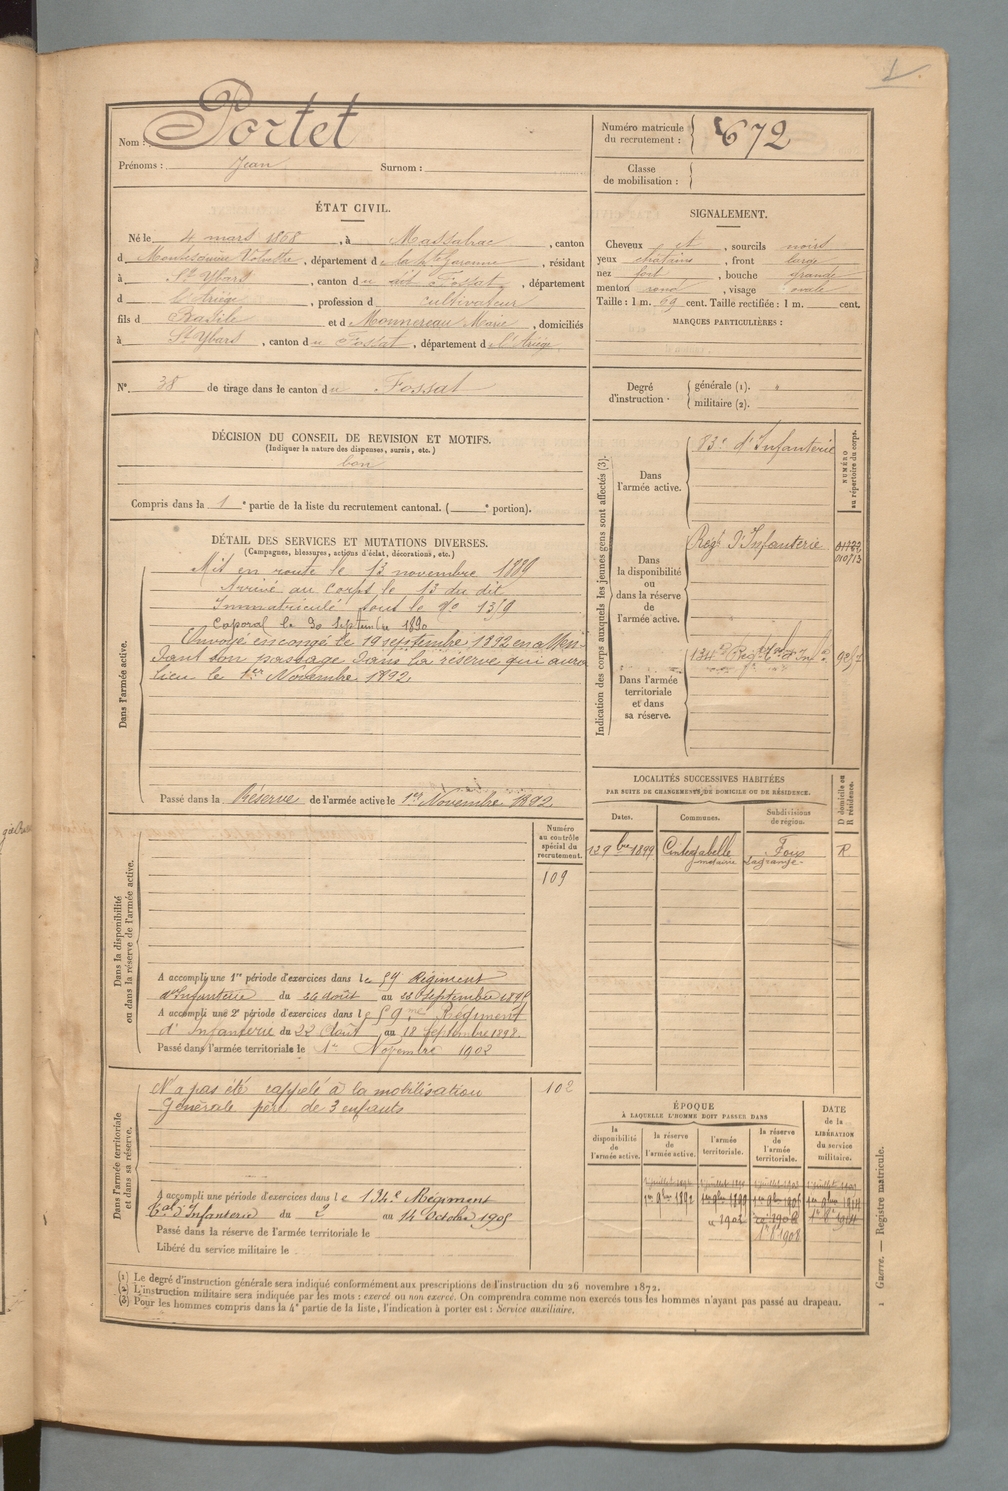 Nom : Portet
Prénoms : Jean Surnom :
ÉTAT CIVIL.
Né le 4 mars 1868, à Massabrac, canton
d Montesquieu Volvestre, département de la Hte Garonne, résidant
à St Ybars, canton du dit Fossat, département
d l'Ariège, profession d cultivateur
fils d Basile et d Monnereau Marie, domiciliés
à St Ybars, canton du Fossat, département de l'Ariège
N° 38 de tirage dans le canton du Fossat
DÉCISION DU CONSEIL DE REVISION ET MOTIFS.
(Indiquer la nature des dispenses, sursis, etc.)
bon
Compris dans la 1e partie de la liste du recrutement cantonal. ( e portion).
DÉTAIL DES SERVICES ET MUTATIONS DIVERSES.
(Campagnes, blessures, actions d'éclat, décorations, etc.)
Dans l'armée active.
Mis en route le 13 novembre 1889
Arrivé au corps le 13 du dit
Immatriculé sous le No 1359
Caporal le 30 Septembre 1890
Envoyé en congé le 19 septembre 1892 en atten-
dant son passage dans la réserve qui aura
lieu le 1er Novembre 1892.
Passé dans la Réserve de l'armée active le 1er Novembre 1892
Dans la disponibilité
ou dans la réserve de l'armée active.
Numéro
au contrôle
spécial du
recrutement.
109
A accompli une 1re période d'exercices dans le 59 Régiment
d'Infanterie du 26 août au 22 Septembre 1895
A accompli une 2e période d'exercices dans le 59me Régiment
d'Infanterie du 22 Août au 18 Septembre 1898.
Passé dans l'armée territoriale le 1er Novembre 1902
Dans l'armée territoriale
et dans sa réserve.
102
N'a pas été rappelé à la mobilisation
Générale père de 3 enfants
A accompli une période d'exercices dans le 134e Régiment
Tal d'Infanterie du 2 au 14 Octobre 1905
Passé dans la réserve de l'armée territoriale le
Libéré du service militaire le
Numéro matricule
du recrutement : 672
Classe
de mobilisation :
SIGNALEMENT.
Cheveux et, sourcils noirs
yeux châtains, front large
nez fort, bouche grande
menton rond, visage ovale
Taille : 1 m. 69 cent. Taille rectifiée : 1 m. cent.
MARQUES PARTICULIÈRES :
Degré
d'instruction.
générale (1). "
militaire (2).
Indication des corps auxquels les jeunes gens sont affectés (3).
NUMÉRO
au répertoire du corps.
Dans
l'armée active.
83e d'Infanterie
Dans
la disponibilité
ou
dans la réserve
de
l'armée active.
Regt d'Infanterie
Dans l'armée
territoriale
et dans
sa réserve.
134e Regt Tal d'Infie
LOCALITÉS SUCCESSIVES HABITÉES
PAR SUITE DE CHANGEMENTS DE DOMICILE OU DE RÉSIDENCE.
D domicile ou
R résidence.
Dates. Communes. Subdivisions
de région.
12 9bre 1899 Cintegabelle Foix R.
Lagrange-
ÉPOQUE
À LAQUELLE L'HOMME DOIT PASSER DANS
la
disponibilité
de
l'armée active.
la réserve
de
l'armée active.
l'armée
territoriale.
la réserve
de
l'armée
territoriale.
DATE
de la
LIBÉRATION
du service
militaire.
1er 9bre 1892 1er 9bre 1899 1er 9bre 1905 1er 9bre 1914
(1) Le degré d'instruction générale sera indiqué conformément aux prescriptions de l'instruction du 26 novembre 1872.
(2) L'instruction militaire sera indiquée par les mots : exercé ou non exercé. On comprendra comme non exercés tous les hommes n'ayant pas passé au drapeau.
(3) Pour les hommes compris dans la 4e partie de la liste, l'indication à porter est : Service auxiliaire.
1 Guerre. — Registre matricule.